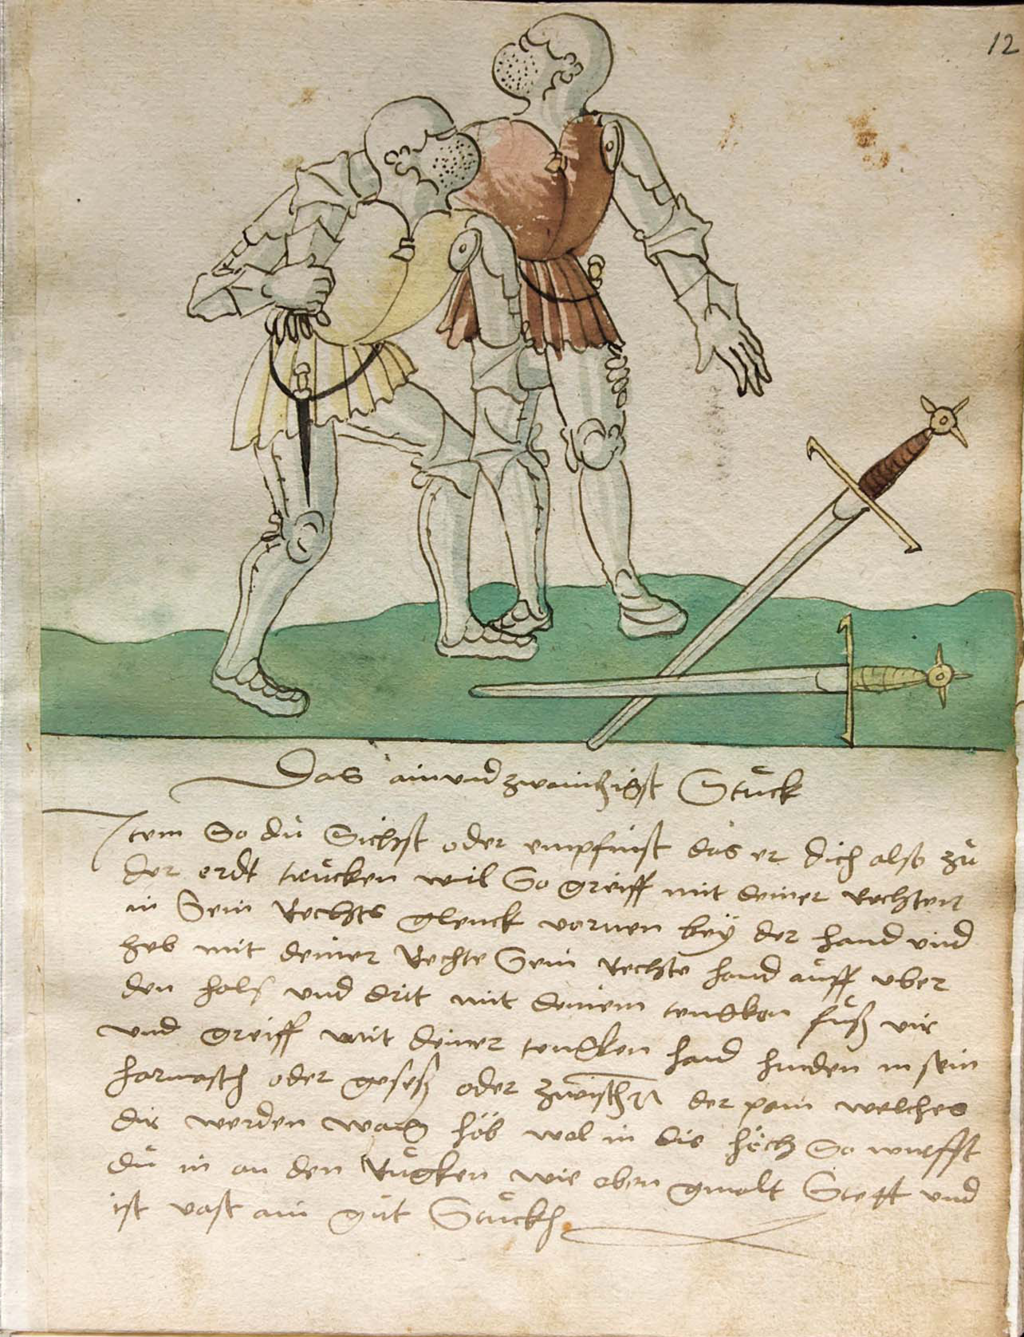 12
Das ainundzwaintzigist Stuck
Item So dů Sichst oder empfinst das er dich also zů
der erdt trůcken wil So greiff mit deiner Rechten
in Sein Rechts glenck vornen bey der hand und
heb mit deiner Rechte Sein rechte hand auff uber
den hals und drit mit deinem lencken fůß für
und greiff mit deiner lencken hand hinden in sein
harnasch oder geseß oder zwischen der pain welches
dir werden mag höb wol in die höch So wirffst
dů in an den Růgken wie oben gmalt Stett und
ist vast ain gůt Stuckh